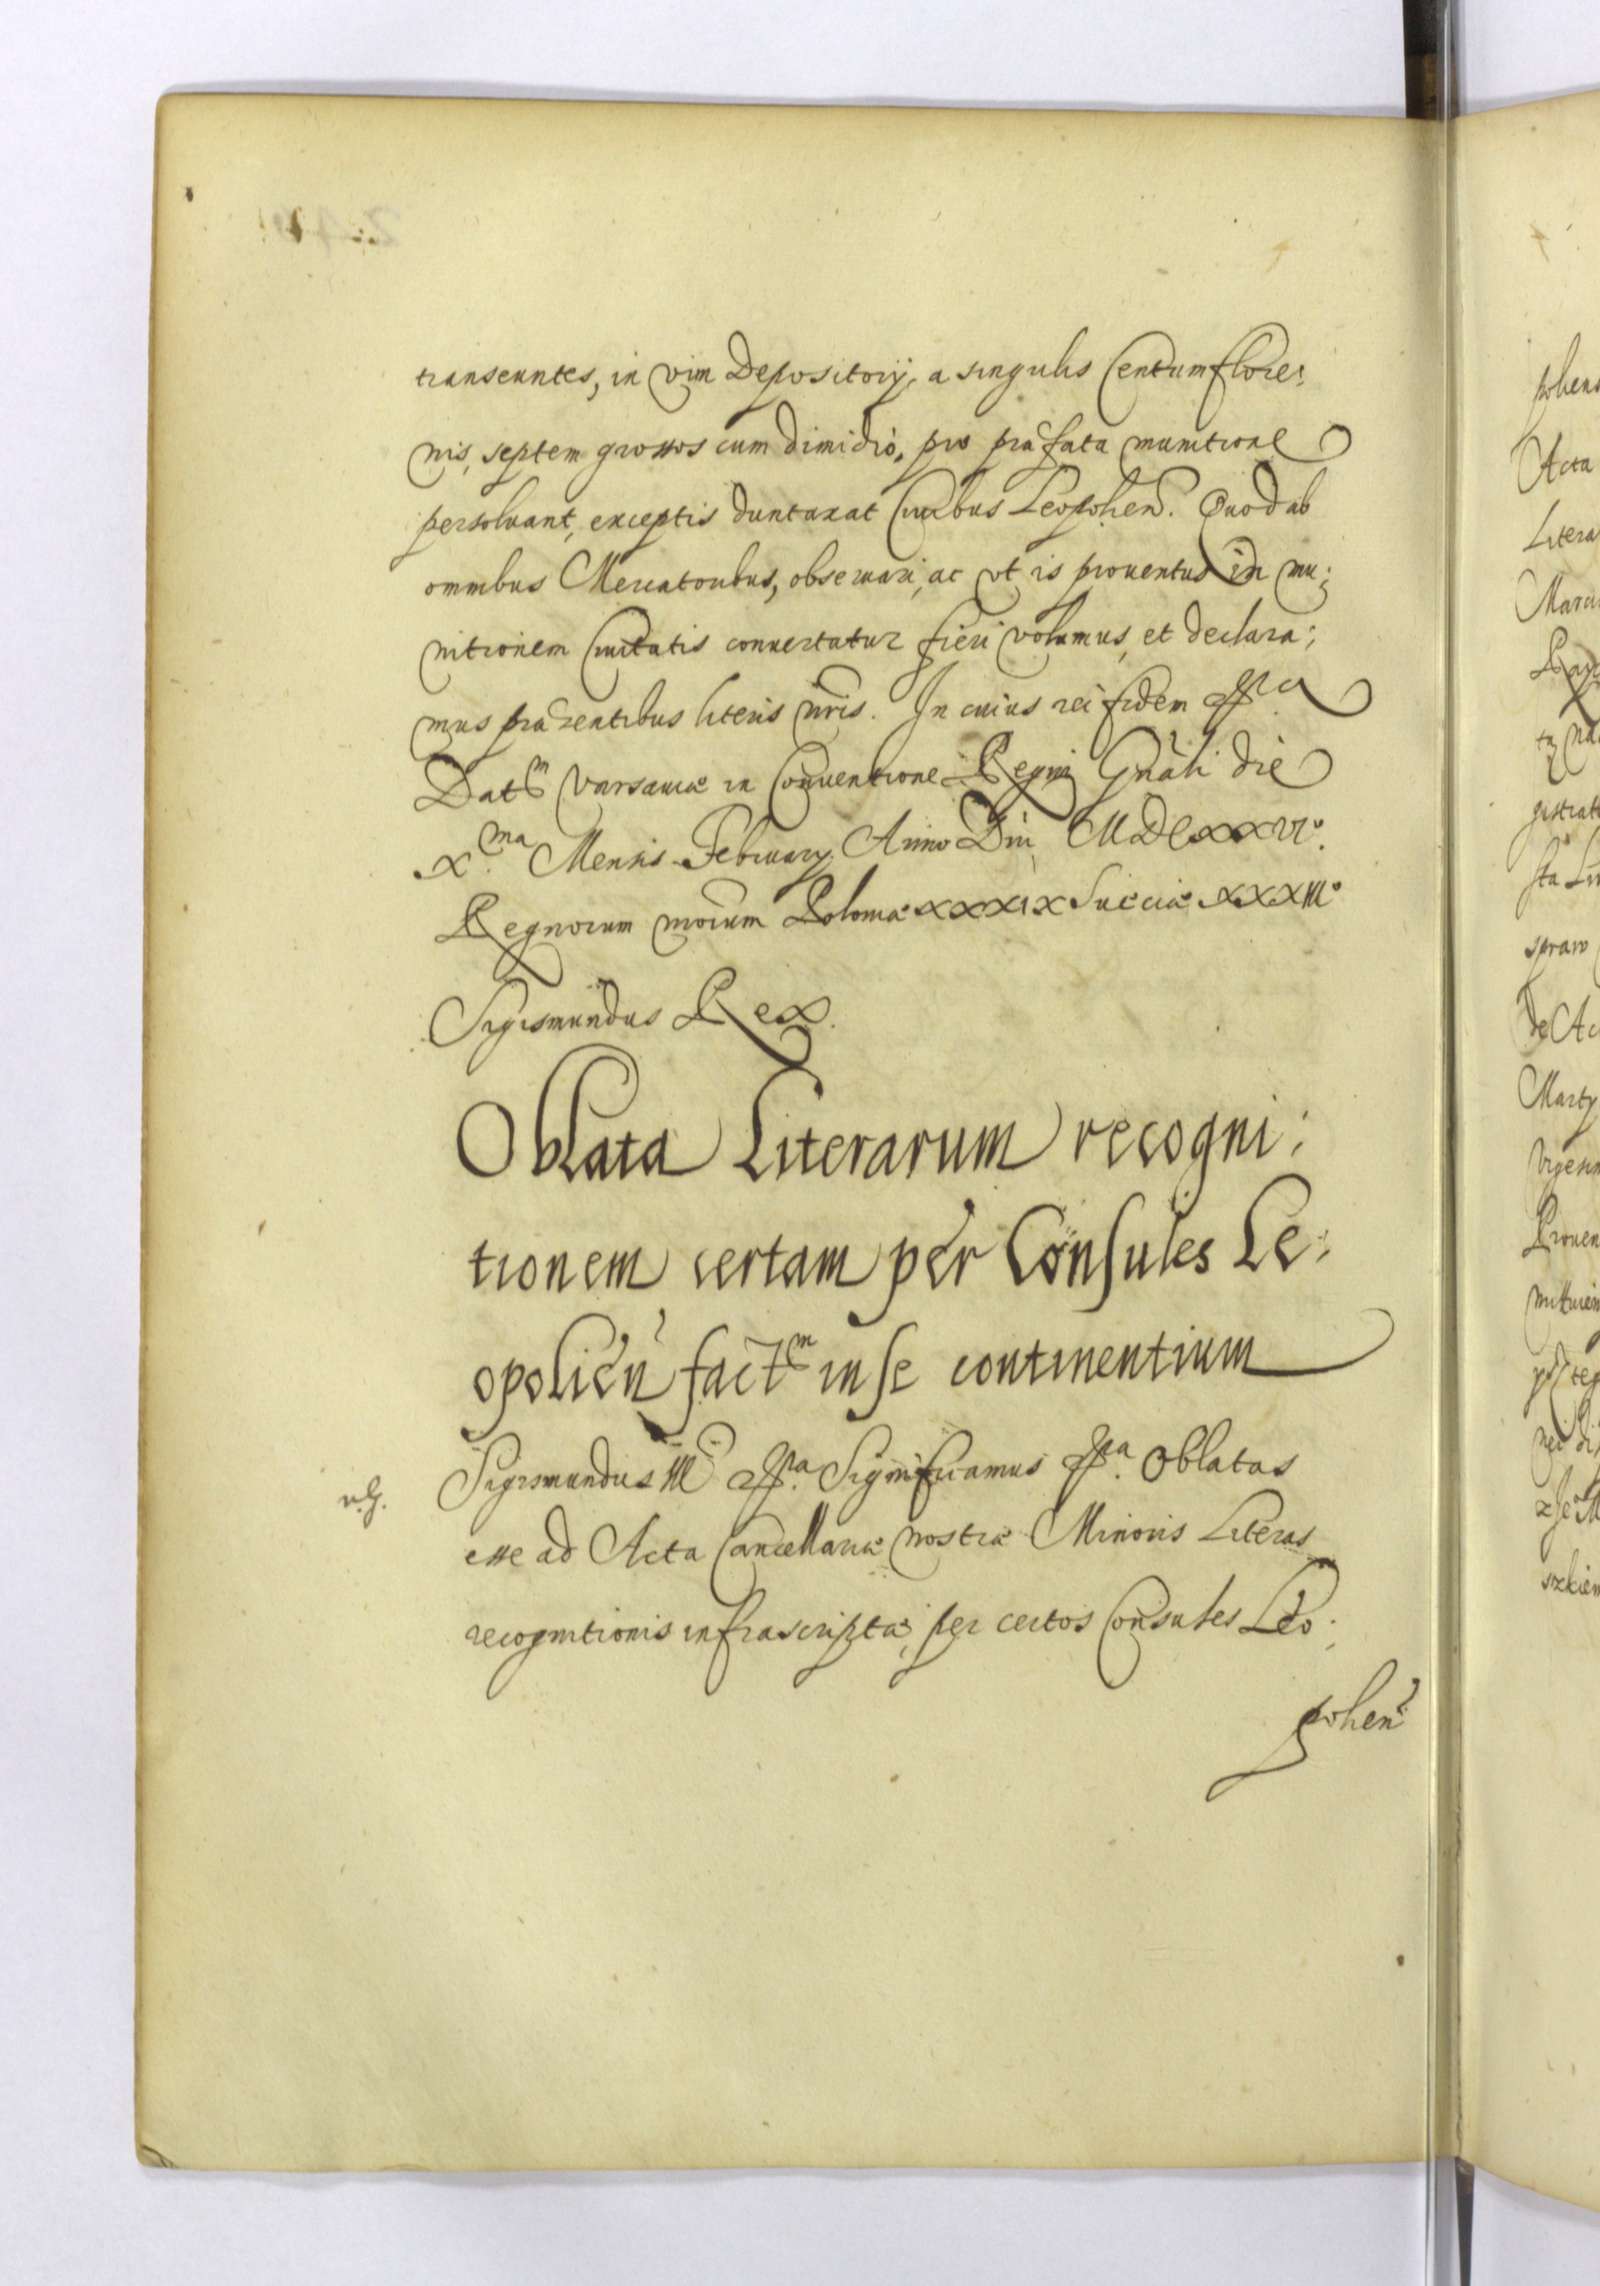 transeuntes, in vim Depositorij, a singulis Centum flore:
nis, septem grossos cum dimidio, pro præfata munitione
persoluant, exceptis duntaxat Ciuibus Leopolien. Quod ab
omnibus Mercatoribus, obseruari, ac vt is prouentus in mu:
nitionem Ciuitatis conuertatur fieri volumus, et declara:
mus præsentibus literis nris. In cuius rei fidem
Datm Varsauiæ in Conuentione Regni Gnali die
Xma Mensis February Anno Dni MDCXXVIo.
Regnorum nrorum Poloniæ XXXIX Sueciæ XXXIIIo
Sigismundus Rex.
Oblata Literarum recogni:
tionem certam per Consules Le:
opolien factm in se continentium
Sigismundus III Significamus Oblatas
esse ad Acta Cancellariæ nostræ Minoris Literas
recognitionis infrascriptæ, per certos Consules Leo:
polien
polien
Acta
Litera
spraw
de Ac
Marty